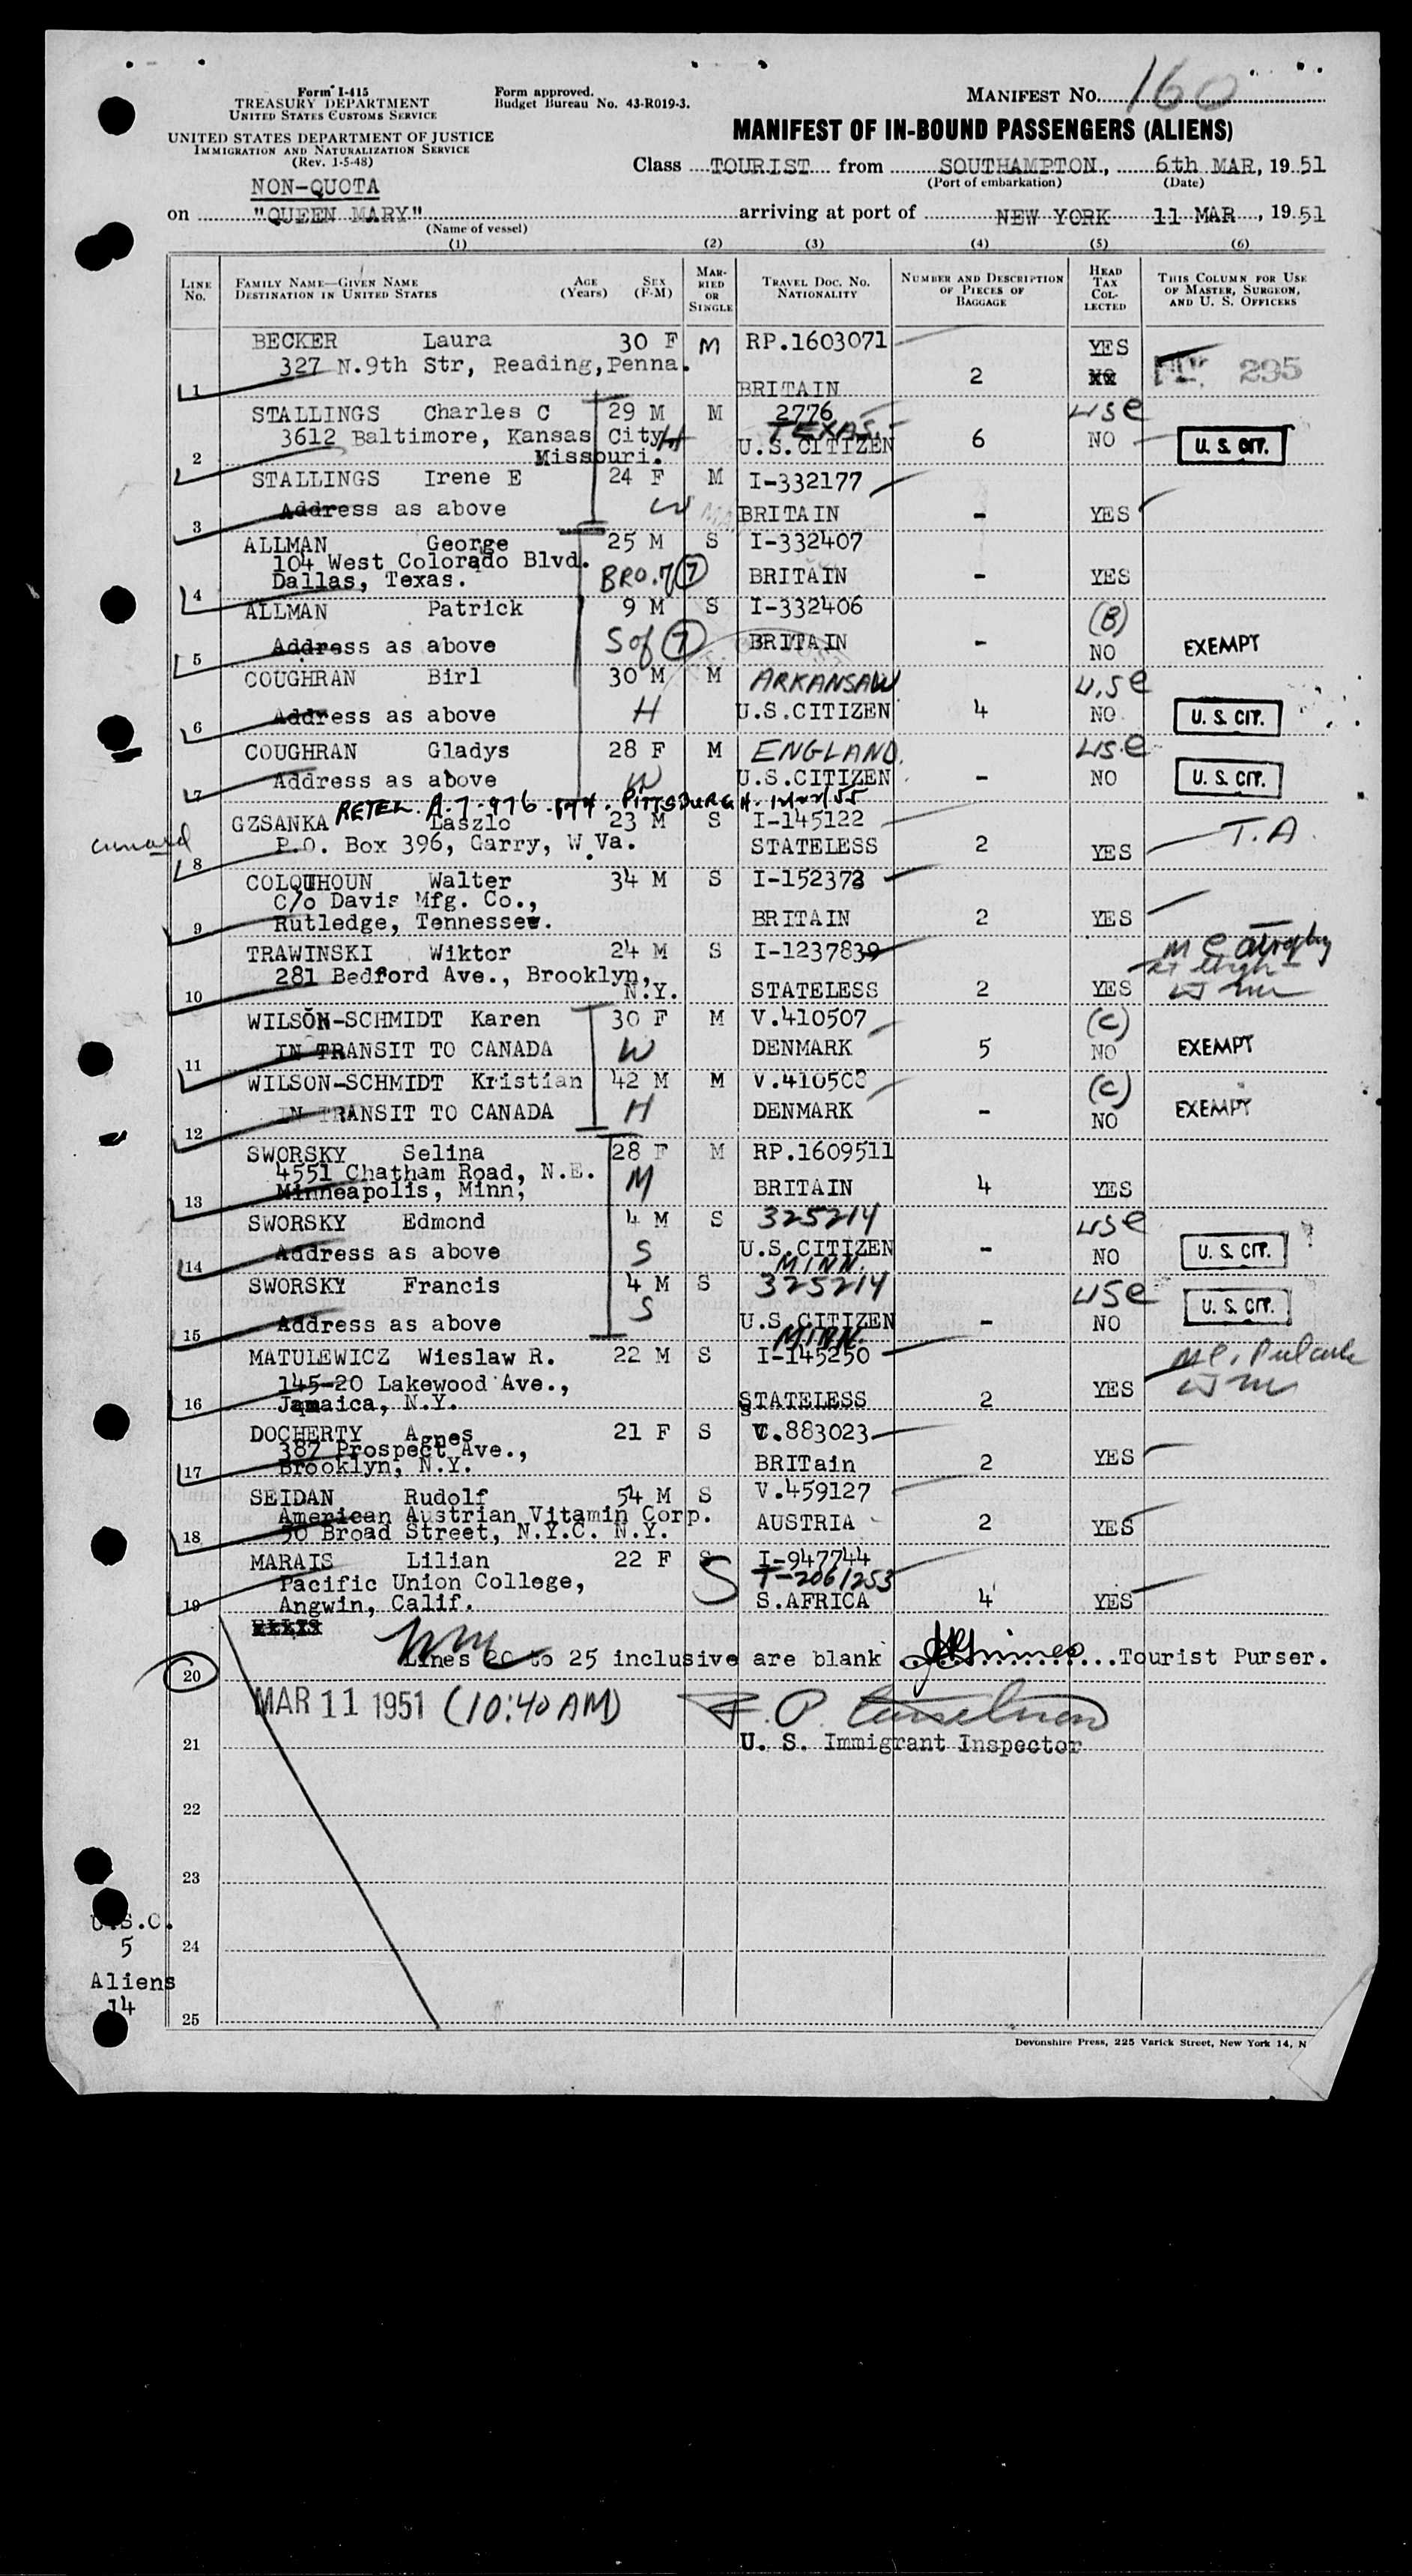 Form I-415
TREASURY DEPARTMENT
UNITED STATES CUSTOMS SERVICE
UNITED STATES DEPARTMENT OF JUSTICE
IMMIGRATION AND NATURALIZATION SERVICE
(Rev. 1-5-48)
Form approved.
Budget Bureau No. 43-R019-3.
MANIFEST NO. 160
MANIFEST OF IN-BOUND PASSENGERS (ALIENS)
Class TOURIST from SOUTHAMPTON, 6th MAR, 1951
(Port of embarkation) (Date)
NON-QUOTA
on "QUEEN MARY" arriving at port of NEW YORK 11 MAR, 1951
(Name of vessel)
(1) (2) (3) (4) (5) (6)
LINE NO. FAMILY NAME—GIVEN NAME DESTINATION IN UNITED STATES AGE (Years) SEX (F-M) MARRIED OR SINGLE TRAVEL DOC. NO. NATIONALITY NUMBER AND DESCRIPTION OF PIECES OF BAGGAGE HEAD TAX COLLECTED THIS COLUMN FOR USE OF MASTER, SURGEON, AND U. S. OFFICERS
BECKER Laura 30 F M RP.1603071 YES
327 N.9th Str, Reading, Penna. 295
1 BRITAIN 2
STALLINGS Charles C 29 M M 2776 USC
TEXAS
3612 Baltimore, Kansas City H U.S.CITIZEN 6 NO U. S. CIT.
2 Missouri.
STALLINGS Irene E 24 F M I-332177
3 Address as above W BRITAIN - YES
ALLMAN George 25 M S I-332407
104 West Colorado Blvd.
4 Dallas, Texas. BRO. 7 (7) BRITAIN - YES
ALLMAN Patrick 9 M S I-332406 (B)
5 Address as above S of (7) BRITAIN - NO EXEMPT
COUGHRAN Birl 30 M M ARKANSAW U.SC
6 Address as above H U.S.CITIZEN 4 NO U. S. CIT.
COUGHRAN Gladys 28 F M ENGLAND. USC
7 Address as above W U.S.CITIZEN - NO U. S. CIT.
RETEL A.7-976 PITTSBURGH 12/22/55
GZSANKA Laszlo 23 M S I-145122 T.A.
cunard
8 P.O. Box 396, Garry, W Va. STATELESS 2 YES
COLQUHOUN Walter 34 M S I-152373
C/o Davis Mfg. Co.,
9 Rutledge, Tennessee. BRITAIN 2 YES
TRAWINSKI Wiktor 24 M S I-1237839
281 Bedford Ave., Brooklyn,
10 N.Y. STATELESS 2 YES
WILSON-SCHMIDT Karen 30 F M V.410507 (C)
11 IN TRANSIT TO CANADA W DENMARK 5 NO EXEMPT
WILSON-SCHMIDT Kristian 42 M M V.410508 (C)
12 IN TRANSIT TO CANADA H DENMARK - NO EXEMPT
SWORSKY Selina 28 F M RP.1609511
4551 Chatham Road, N.E.
13 Minneapolis, Minn, M BRITAIN 4 YES
SWORSKY Edmond 4 M S 325214 USC
14 Address as above S U.S.CITIZEN - NO U. S. CIT.
MINN.
SWORSKY Francis 4 M S 325214 USC
15 Address as above S U.S.CITIZEN - NO U. S. CIT.
MINN.
MATULEWICZ Wieslaw R. 22 M S I-145250
145-20 Lakewood Ave.,
16 Jamaica, N.Y. STATELESS 2 YES
DOCHERTY Agnes 21 F S V.883023
387 Prospect Ave.,
17 Brooklyn, N.Y. BRITain 2 YES
SEIDAN Rudolf 54 M S V.459127
American Austrian Vitamin Corp.
18 50 Broad Street, N.Y.C. N.Y. AUSTRIA 2 YES
MARAIS Lilian 22 F S I-947744
Pacific Union College, S T-2061253
19 Angwin, Calif. S.AFRICA 4 YES
20 Lines 20 to 25 inclusive are blank Tourist Purser.
MAR 11 1951 (10:40 AM)
21 U. S. Immigrant Inspector
22
23
U.S.C.
5 24
Aliens
14 25
Devonshire Press, 225 Varick Street, New York 14, N